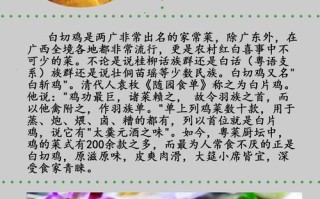 白切鸡是两广非常出名的家常菜，除广东外，在
广西全境各地都非常流行，更是农村红白喜事中不
可少的。不论是说桂柳话族群还是白话（粤语支
系）族群还是说壮侗苗瑶等少数民族。白切鸡又名"
白斩鸡"。清代人袁枚《随园食单》称之为白片鸡。
他说："鸡功最巨，诸菜赖之， 故令羽族之首，而
以他禽附之，作羽族单。"单上列鸡菜数十款，用于
蒸、炮、煨、卤、糟的都有，列以首位的就是白片
鸡，说它有"太羹元酒之味"。如今，粤菜厨坛中，
鸡的菜式有200余款之多，而最为人常食不厌的正是
白切鸡，原滋原味，皮爽肉滑，大筵小席皆宜，深
受食家青睐。